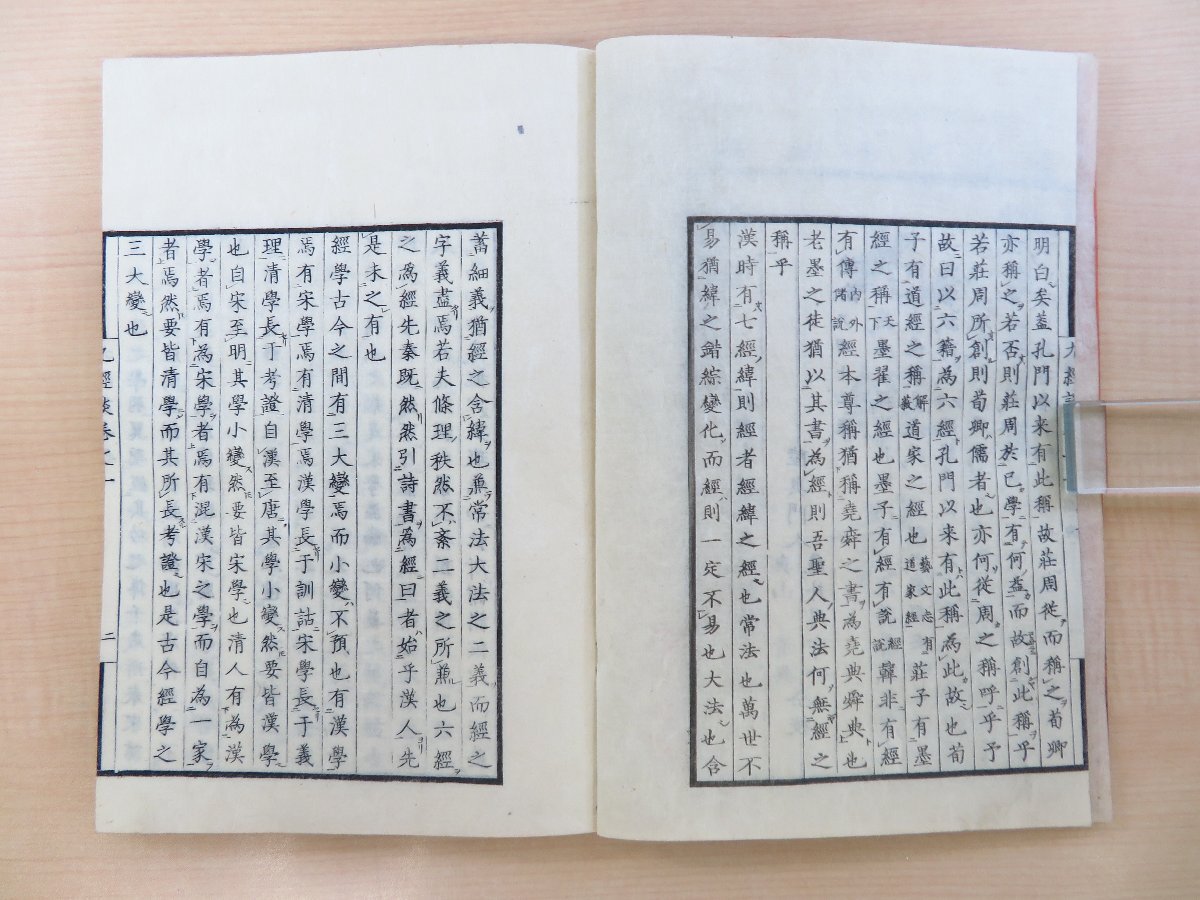 明白矣蓋孔門以来有此稱故莊周從而稱之荀卿
亦稱之若否則莊周於已學有何益而故創此稱乎
若莊周所創則荀卿儒者也亦何從周之稱呼乎予
故曰以六籍為六經孔門以来有此稱為此故也荀
子有道經之稱解義道家之經也藝文志有道家經莊子有墨
經之稱天下墨翟之經也墨子有經有說經說韓非有經
有傳內外儲說經本尊稱猶堯舜之書為堯典舜典也
老墨之徒猶以其書為經則吾聖人典法何無經之
稱乎
漢時有七經緯則經者經緯之經也常法也萬世不
易猶緯之錯綜變化而經則一定不易也大法也含
蓄細義猶經之含緯也蓋常法大法之二義而經之
字義盡焉若夫條理秩然不紊二義之所兼也六經
之為經先秦既然然引詩書為經曰者始乎漢人先
是未之有也
經學古今之間有三大變焉而小變不預也有漢學
焉有宋學焉有清學焉漢學長于訓詁宋學長于義
理清學長于考證自漢至唐其學小變然要皆漢學
也自宋至明其學小變然要皆宋學也清人有為漢
學者焉有為宋學者焉有混漢宋之學而自為一家
者焉然要皆清學而其所長考證也是古今經學之
三大變也
九經談卷之一
二